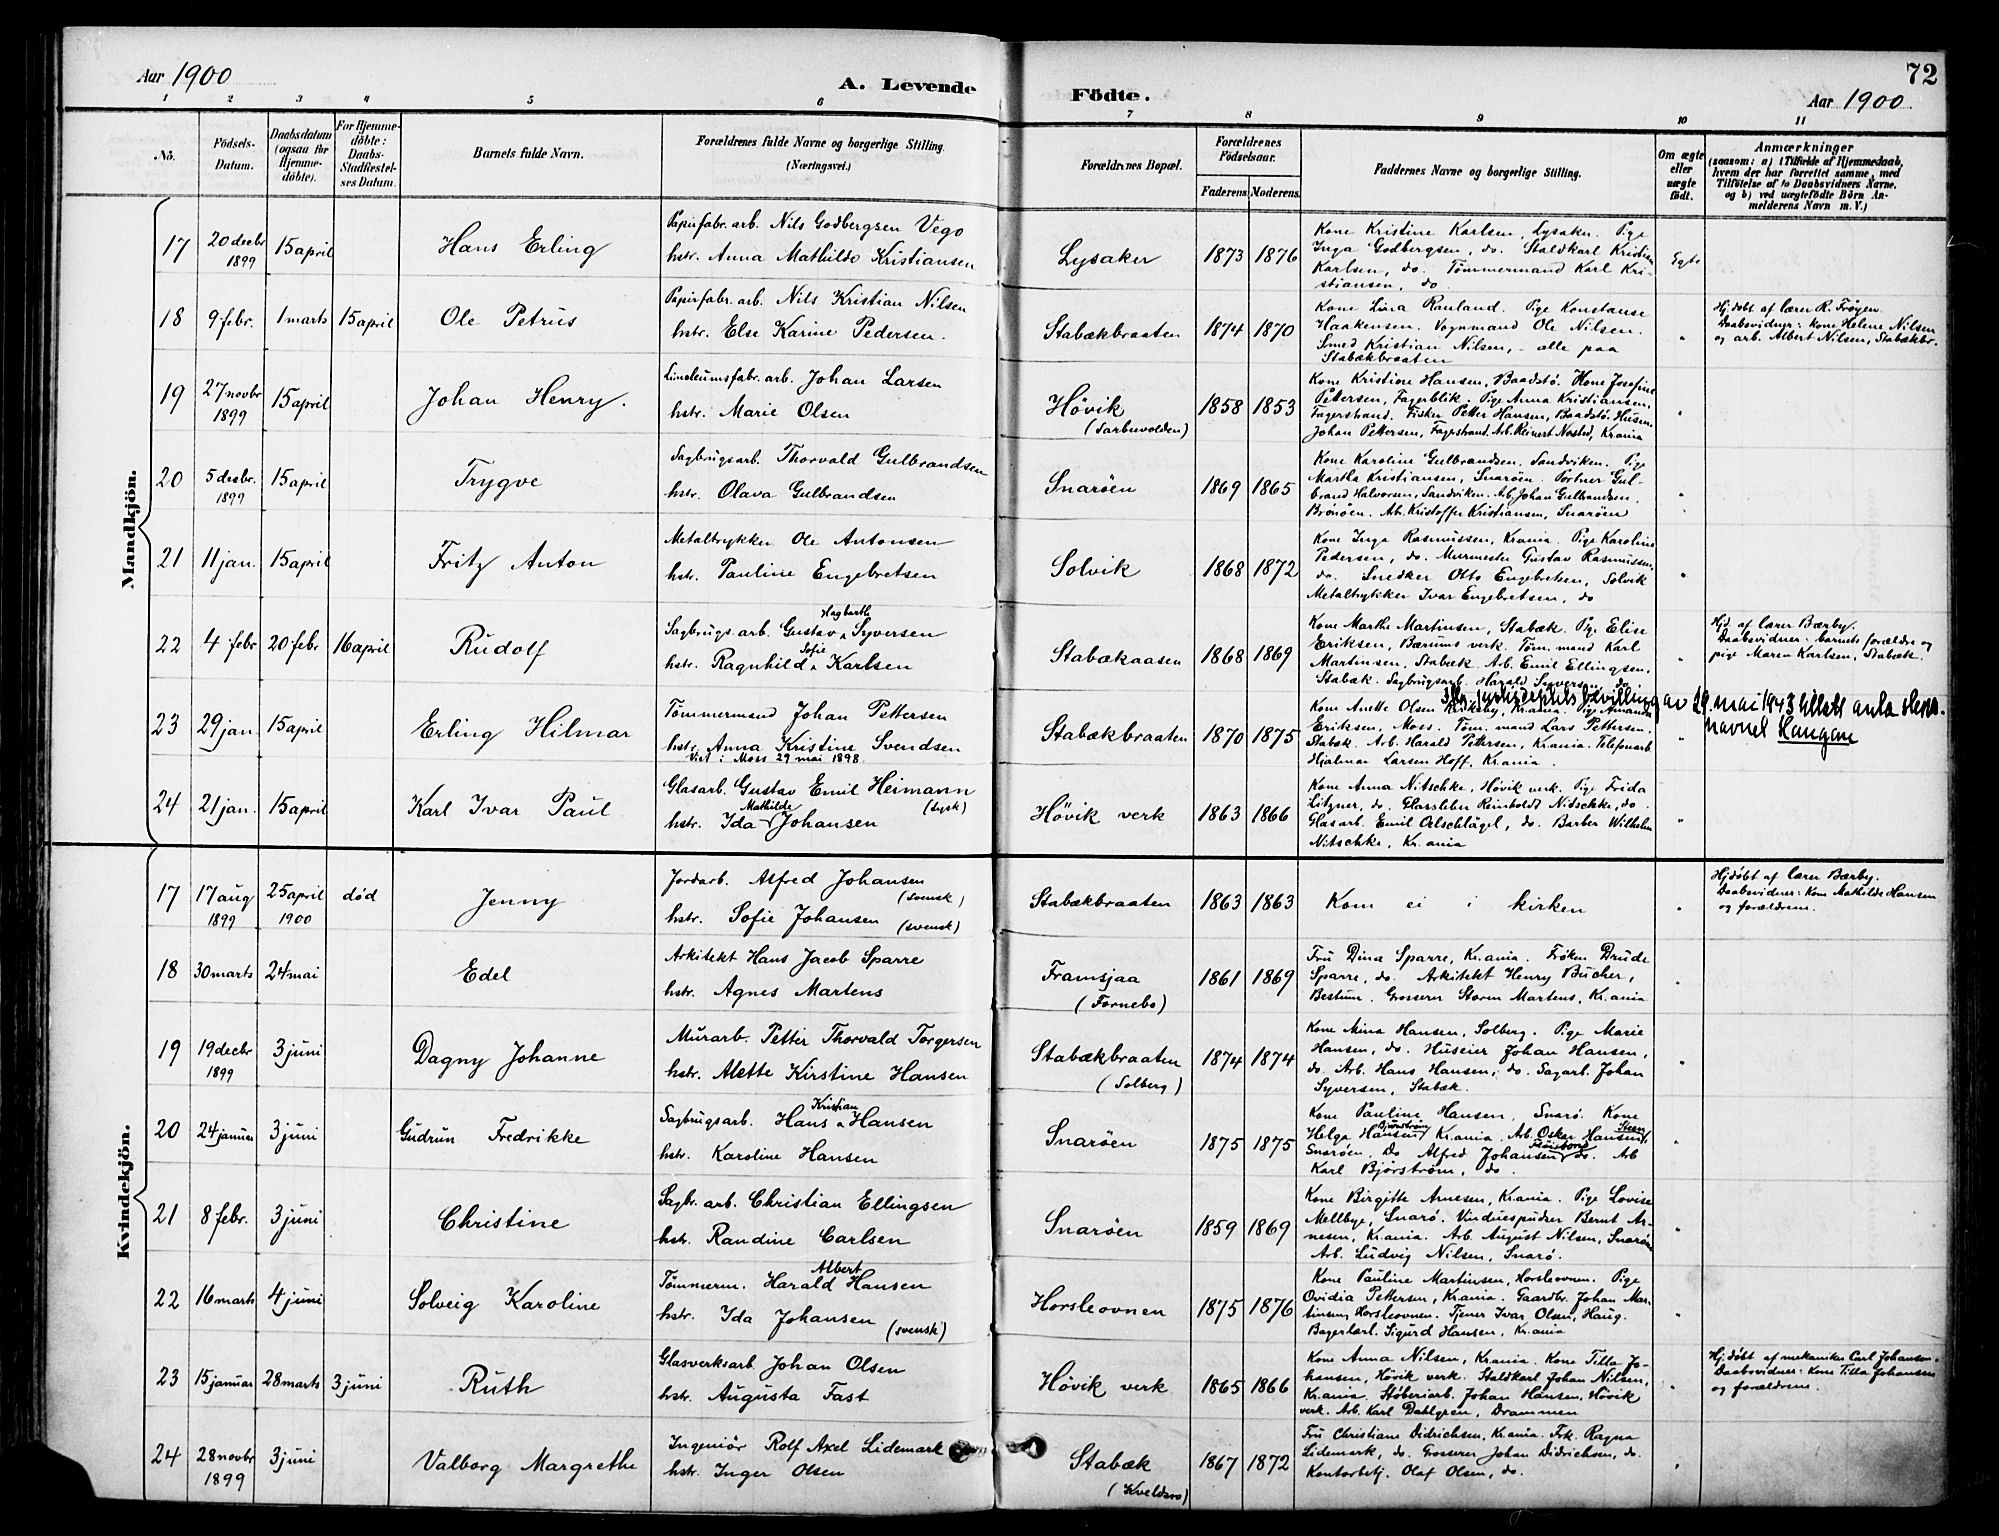 72
Aar 1900
A. Levende Födte.
Aar 1900.
1 2 3 4 5 6 7 8 9 10 11
No.
Födsels-
Datum.
Daabsdatum
(ogsaa for
Hjemme-
döbte).
For Hjemme-
döbte:
Daabs-
Stadfæstel-
ses Datum.
Barnets fulde Navn.
Forældrenes fulde Navne og borgerlige Stilling.
(Næringsvei.)
Forældrenes Bopæl.
Forældrenes
Födselsaar.
Faderens. Moderens.
Faddernes Navne og borgerlige Stilling.
Om ægte
eller
uægte
födt.
Anmærkninger
(saasom: a) i Tilfælde af Hjemmedaab,
hvem der har forrettet samme, med
Tilföielse af to Daabsvidners Navne.
og b) ved uægtefödte Börn An-
melderens Navn m. V.)
Mandkjön.
17
20 decbr
1899
15 april
Hans Erling
Papirfabr. arb. Nils Godbergsen Vego
hstr. Anna Mathilde Kristiansen
Lysaker
1873 1876
Kone Kristine Karlsen, Lysaker. Pige
Inga Godbergsen, do. Staldkarl Kristian
Karlsen, do. Tömmermand Karl Kri-
stiansen, do.
Egte
18
9 febr.
1 marts
15 april
Ole Petrus
Papirfabr. arb. Nils Kristian Nilsen
hstr. Else Karine Pedersen.
Stabækbraaten
1874 1870
Kone Lina Rauland. Pige Konstanse
Haakensen. Vognmand Ole Nilsen.
Smed Kristian Nilsen, - alle paa
Stabækbraaten
"
Hj. döbt af lærer R. Fröyen
Daabsvidner: Kone Helene Nilsen
og arb. Albert Nilsen, Stabækbr.
19
27 novbr
1899
15 april
Johan Henry.
Linoleumsfabr. arb. Johan Larsen
hstr. Marie Olsen
Hövik
(Sarbuvolden)
1858 1853
Kone Kristine Hansen, Baadstö. Kone Josefine
Pettersen, Fagerblik. Pige Anna Kristiansen,
Fagerstrand. Fisker Petter Hansen, Baadstö. Husm.
Johan Pettersen, Fagerstrand. Arb. Reinert Nosted, Krania
"
20
5 decbr.
1899
15 april
Trygve
Sagbrugsarb. Thorvald Gulbrandsen
hstr. Olava Gulbrandsen
Snaröen
1869 1865
Kone Karoline Gulbrandsen, Sandviken. Pige
Martha Kristiansen, Snaröen. Portner Gul-
brand Halvorsen, Sandviken. Arb. Johan Gulbrandsen.
Brönöen. Arb. Kristoffer Kristiansen, Snaröen
"
21
11 jan.
15 april
Fritz Anton
Metaltrykker Ole Antonsen
hstr. Pauline Engebretsen
Solvik
1868 1872
Kone Inga Rasmussen, Krania. Pige Karoline
Pedersen, do. Murmester Gustav Rasmussen,
do. Snedker Otto Engebretsen, Solvik
Metaltrykker Ivar Engebretsen, do
"
22
4 febr
20 febr
16 april
Rudolf
Hagbarth
Sagbrugs. arb. Gustav Syversen
Sofie
hstr. Ragnhild Karlsen
Stabækaasen
1868 1869
Kone Marthe Martinsen, Stabæk. Pige Elise
Eriksen, Bærums verk. Töm. mand Karl
Martinsen, Stabæk. Arb. Emil Ellingsen,
Stabæk. Sagbrugsarb. Harald Syversen, do
"
Hjd. af lærer Bærby.
Daabsvidner: barnets forældre og
pige Maren Karlsen, Stabæk.
bevilling av 29. mai 1943 tillatt anta slekts-
navnet Haugan
23
29 jan.
15 april
Erling Hilmar
Tömmermand Johan Pettersen
hstr. Anna Kristine Svendsen
Viet i Moss 29 mai 1898
Stabækbraaten
1870 1875
Kone Anette Olsen Krania. Pige Amanda
Eriksen, Moss. Töm. mand Lars Pettersen.
Stabæk. Arb. Harald Pettersen, Krania. Telefonarb
Hjalmar Larsen Hoff, Krania.
"
24
21 jan.
15 april
Karl Ivar Paul
Glasarb. Gustav Emil Heimann
(tysk)
Mathilde
hstr. Ida Johansen
Hövik verk
1863 1866
Kone Anna Nitschke, Hövik verk. Pige Frida
Litzner, do. Glassliber Reinholdt Nitschke, do.
Glasarb. Emil Oelschlägel, do. Barber Wilhelm
Nitschke, Kr.ania
"
Kvindekjön.
17
17 aug
1899
25 april
1900
död
Jenny
Jordarb. Alfred Johansen
(svensk)
hstr. Sofie Johansen
(svensk)
Stabækbraaten
1863 1863
Kom ei i kirken
"
Hjdöbt af lærer Bærby.
Daabsvidner: Kone Mathilde Hansen
og forældrene.
18
30 marts
24 mai
Edel
Arkitekt Hans Jacob Sparre
hstr. Agnes Martens
Framsjaa
(Fornebo)
1861 1869
Fru Dina Sparre, Kr.ania. Fröken Drude
Sparre, do. Arkitekt Henry Bucher,
Bestum. Grosserer Storm Martens, Kr.ania
"
19
19 decbr
1899
3 juni
Dagny Johanne
Murarb. Petter Thorvald Torgersen
hstr. Alette Kirstine Hansen
Stabækbraaten
(Solberg)
1874 1874
Kone Mina Hansen, Solberg. Pige Marie
Hansen, do. Huseier Johan Hansen,
do. Arb. Hans Hansen, do. Sagarb. Johan
Syversen, Stabæk.
"
20
24 januar
3 juni
Gudrun Fredrikke
Kristian
Sagbrugsarb. Hans Hansen
hstr. Karoline Hansen
Snaröen
1875 1875
Kone Pauline Hansen, Snarö. Kone
Björström Steen
Helga Hansen, Kr.ania. Arb. Oskar Hansen,
Snaröen, Do Alfred Johansen do. Arb
Karl Björström, do.
21
8 febr.
3 juni
Christine
Sagbr. arb. Christian Ellingsen
hstr. Randine Carlsen
Snaröen
1859 1869
Kone Birgitte Arnesen, Kr.ania. Pige Lovise
Mellbye, Snarö. Vinduespudser Bernt Ar-
nesen, Kr.ania. Arb. August Nilsen, Snaröen
Arb. Ludvig Nilsen, Snarö.
"
22
16 marts
4 juni
Solveig Karoline
Albert
Tömmerm. Harald Hansen
hstr. Ida Johansen
(svensk)
Horsleovnen
1875 1876
Kone Pauline Martinsen, Horsleovnen. Pige
Ovidia Pettersen, Kr.ania. Gaardbr. Johan Mar-
tinsen, Horsleovnen. Tjener Ivar Olsen, Haug.
Bagerlærl. Sigurd Hansen, Kr.ania
"
23
15 januar
28 marts
3 juni
Ruth
Glasverksarb. Johan Olsen
hstr. Augusta Fast
Hövik verk
1865 1866
Kone Anna Nilsen, Kr.ania. Kone Tilla Jo-
hansen, Hövik verk. Staldkarl Johan Nilsen,
Kr.ania. Stöberiarb. Johan Hansen, Hövik
verk. Arb. Karl Dahlgren, Drammen
"
Hj. döbt af mekaniker Carl Johansen.
Daabsvidner: Kone Tilla Johansen
og forældrene.
24
28 novbr
1899
3 juni
Valborg Margrethe
Ingeniör Rolf Axel Lidemark
hstr. Inger Olsen
Stabæk
(Kveldsro)
1867 1872
Fru Christiane Didrichsen, Kr.ania. Frk. Ragna
Lidemark, do. Grosserer Johan Didrichsen, do.
Kontorbetj. Olaf Olsen, do.
"